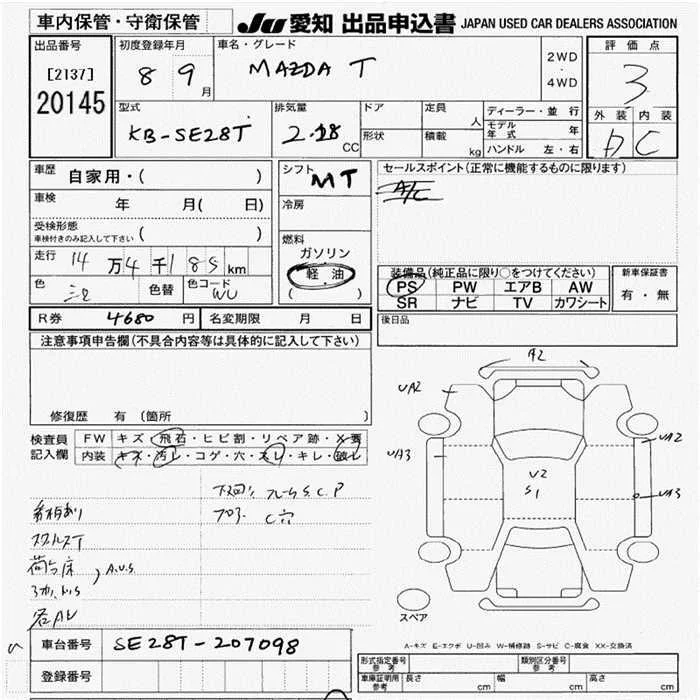 車内保管・守衛保管
JU 愛知 出品申込書 JAPAN USED CAR DEALERS ASSOCIATION
出品番号
[2137]
20145
初度登録年月
8 9月
車名・グレード
MAZDA T
2WD
・
4WD
評価点
3
外装 内装
D C
型式
KB-SE28T
排気量
2.18 CC
ドア
形状
定員 人
積載 kg
ディーラー・並行
モデル年式 年
ハンドル 左・右
車歴 自家用・( )
車検 年 月( 日)
受検形態
車検付きのみ記入して下さい ( )
走行 14万4千185km
色 色替 色コード WU
シフト MT
冷房
燃料
ガソリン
軽油
( )
セールスポイント(正常に機能するものに限ります)
A/C
装備品(純正品に限り○をつけてください)
PS PW エアB AW
SR ナビ TV カワシート
新車保証書
有・無
R券 4680円 名変期限 月 日
後日品
注意事項申告欄(不具合内容等は具体的に記入して下さい)
修復歴 有 (箇所 )
検査員記入欄
FW キズ・飛石・ヒビ割・リペア跡・X要
内装 キズ・汚レ・コゲ・穴・スレ・キレ・破レ
下回り フレームS.C.P
フロア C穴
荷台床
A.U.S
A2
UA2
UA3
UA2
UA3
U2
S1
スペア
車台番号 SE28T-207098
登録番号
A-キズ E-エクボ U-凹み W-補修跡 S-サビ C-腐食 XX-交換済
形式指定番号 参考
類別区分番号 参考
車庫証明用 参考
長さ cm 幅 cm 高さ cm